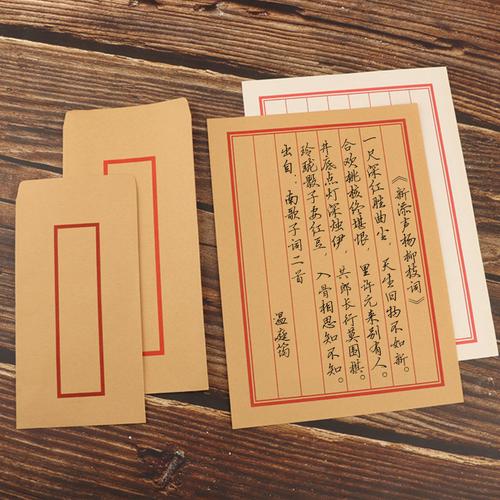 《新添声杨柳枝词》
一尺深红胜曲尘，天生旧物不如新。
合欢桃核终堪恨，里许元来别有人。
井底点灯深烛伊，共郎长行莫围棋。
玲珑骰子安红豆，入骨相思知不知。
出自：南歌子词二首
温庭筠